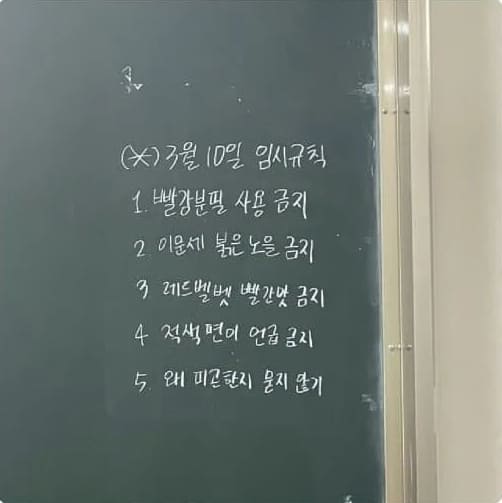 (※) 3월 10일 임시규칙
1. 빨강분필 사용 금지
2 이문세 붉은노을 금지
3 레드벨벳 빨간맛 금지
4 적색편이 언급 금지
5. 왜 피곤한지 묻지 않기